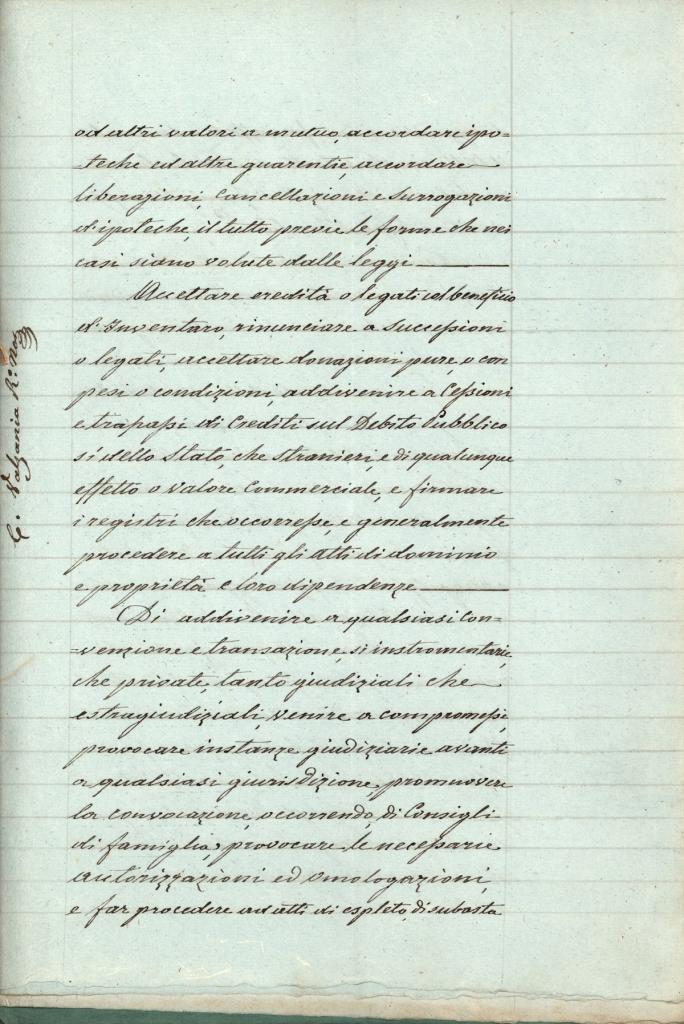 od altri valori a mutuo, accordare ipo=
teche ed altre guarentie, accordare
liberazioni, Cancellazioni e Surrogazioni
d'ipoteche, il tutto previe le forme che nei
casi siano volute dalle leggi
Accettare eredità o legati col beneficio
d'Inventaro, rinunciare a Successioni
o legati, accettare donazioni pure, o con
pesi o condizioni, addivenire a Cessioni
e trapassi di Crediti sul Debito Pubblico
sì dello Stato, che stranieri, e di qualunque
effetto o valore Commerciale, e firmare
i registri che occorresse, e generalmente
procedere a tutti gli atti di dominio
e proprietà e loro dipendenze
Di addivenire a qualsiasi Con=
=venzione e transazione, sì instromentarie,
che private, tanto giudiziali che
estragiudiziali, venire a compromessi,
provocare instanze giudiziarie avanti
a qualsiasi giurisdizione, promuovere
la convocazione, occorrendo, di Consigli
di famiglia, provocare le necessarie
autorizzazioni ed omologazioni,
e far procedere ad atti di espleto, di subasta
C. Valzania R.º Not